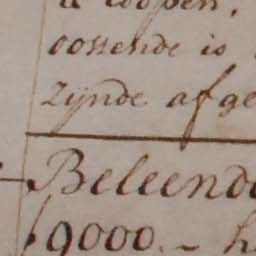 te loopen,
oostende is
zijnde afge
Beleende
9000. - h